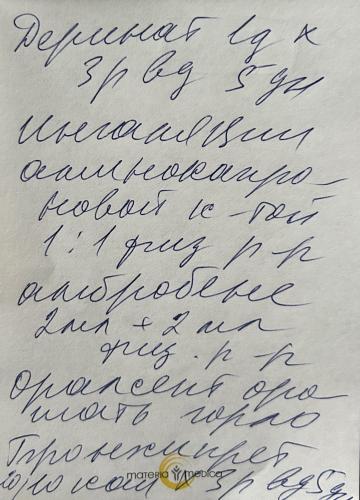 Деринат 1д х
3р вд 5 дн
Ингаляции
аминокапро-
новой к-той
1:1 физ р-р
амбробене
2мл + 2 мл
физ. р-р
орасепт оро
шать горло
Бронхипрет
10 кап х 3р вд 5дн
materia medica